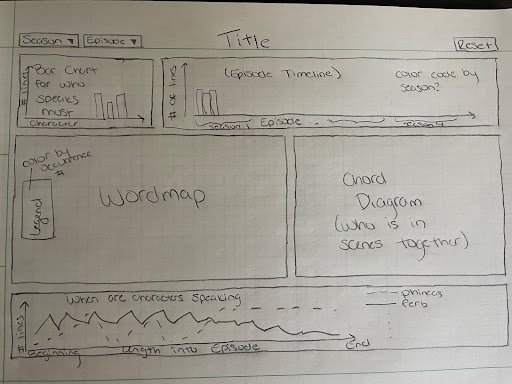 Season ▼ Episode ▼
Title
Reset
# lines
Bar Chart
for who
speaks
most
Character
# of lines
(Episode Timeline)
color code by
season?
Season 1 Episode ... Season 4
color by
occurrence
#
Legend
Wordmap
Chord
Diagram
(who is in
scenes together)
When are characters speaking
# lines
Beginning
Length into Episode
End
phineas
ferb